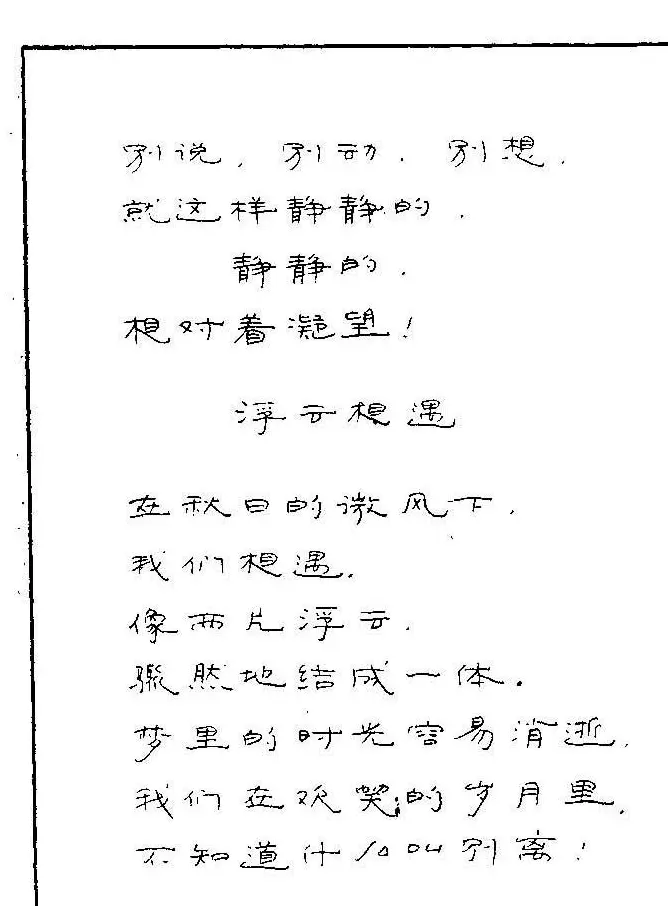 别说，别动，别想，
就这样静静的，
静静的，
想对着凝望！
浮云想遇
在秋日的微风下，
我们想遇，
像两片浮云，
骤然地结成一体。
梦里的时光容易消逝，
我们在欢笑的岁月里，
不知道什么叫别离！